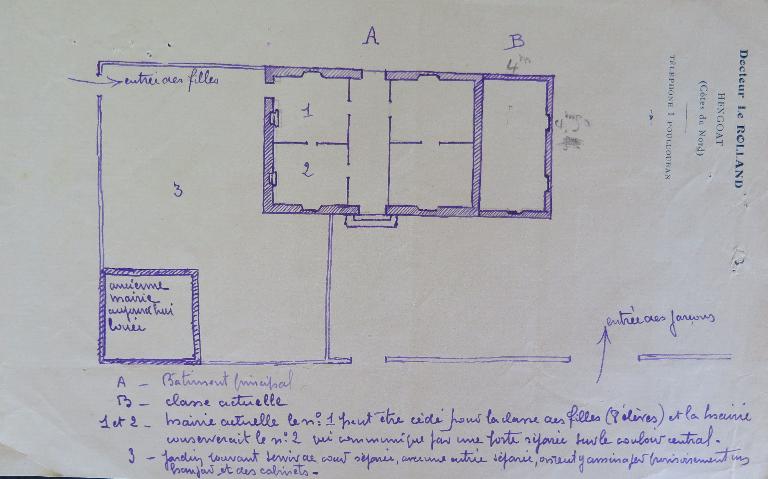 A
B
4m
Docteur Le ROLLAND
HENGOAT
(Côtes du Nord)
TÉLÉPHONE 1 POULDOURAN
entrée des filles
1
2
3
ancienne
mairie
aujourd'hui
louée
entrée des garçons
A - Bâtiment principal
B - classe actuelle
1 et 2 - Mairie actuelle le n° 1 peut être cédé pour la classe des filles (8 élèves) et la Mairie
conserverait le n° 2 qui communique par une porte séparée sur le couloir central.
3 - Jardin pouvant servir de cour séparée, avec une entrée séparée, on veut y aménager provisoirement un
hangar et des cabinets.